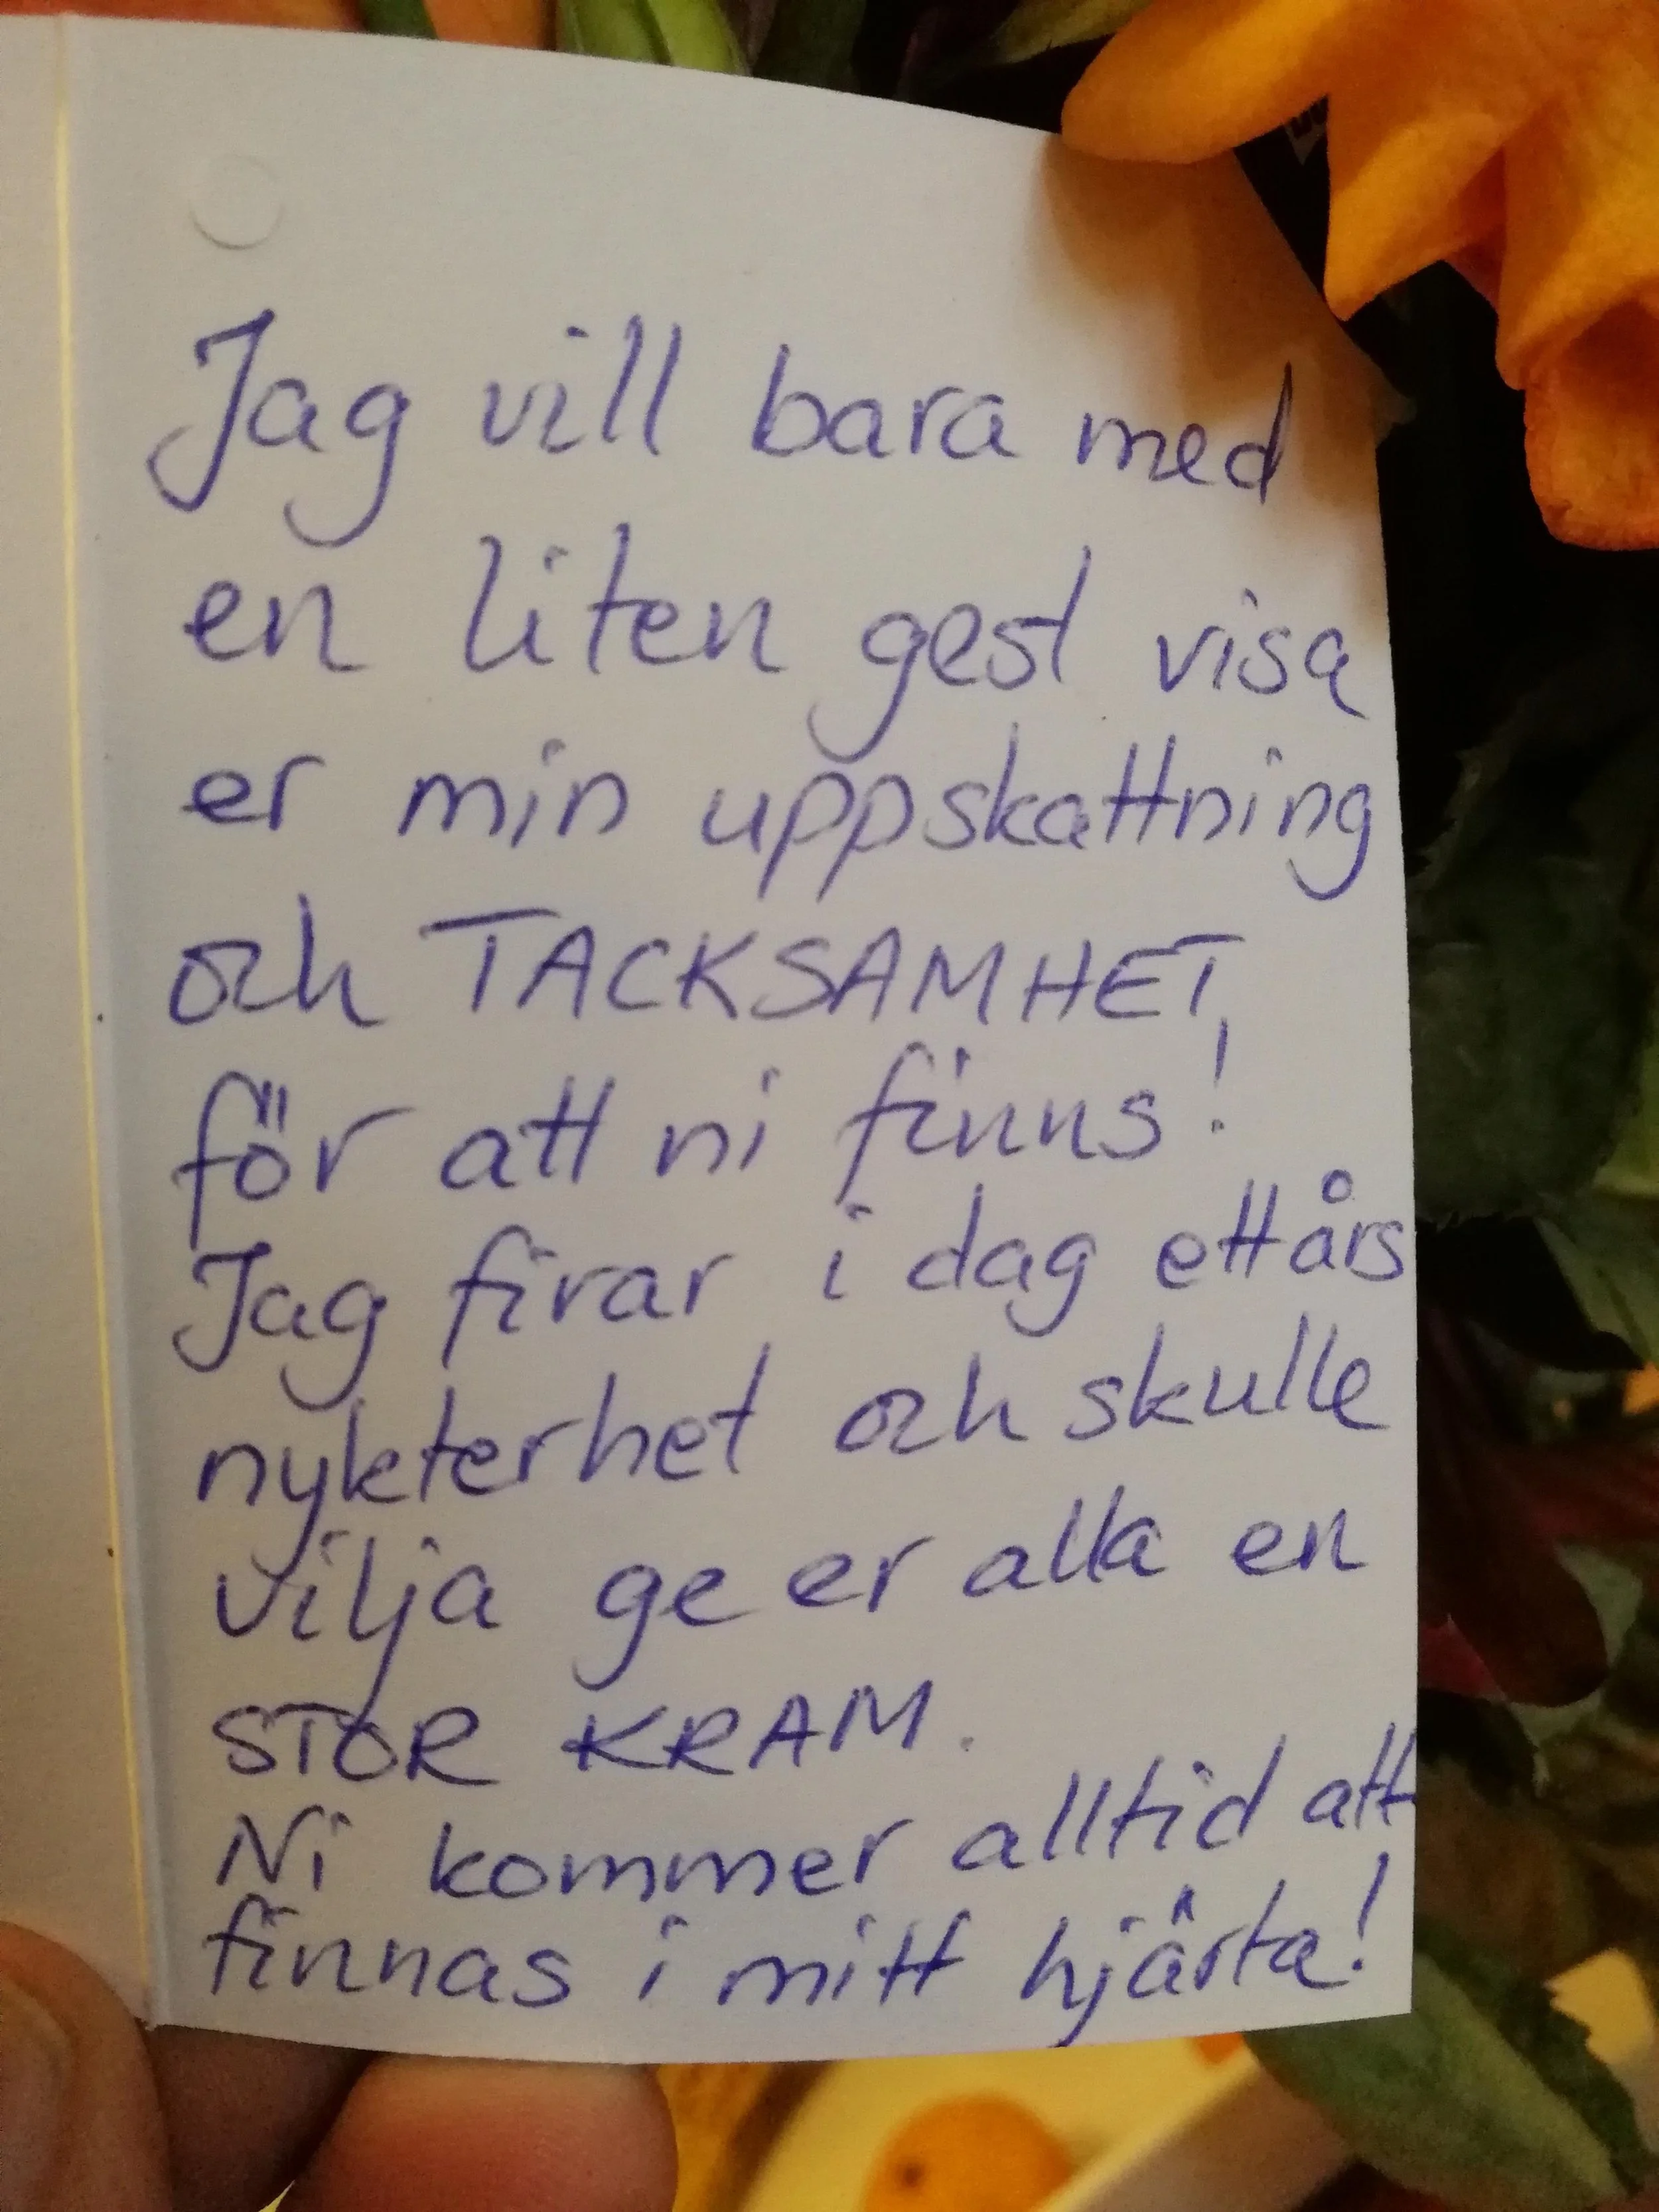 Jag vill bara med
en liten gest visa
er min uppskattning
och TACKSAMHET
för att ni finns!
Jag firar i dag ett års
nykterhet och skulle
vilja ge er alla en
STOR KRAM.
Ni kommer alltid att
finnas i mitt hjärta!